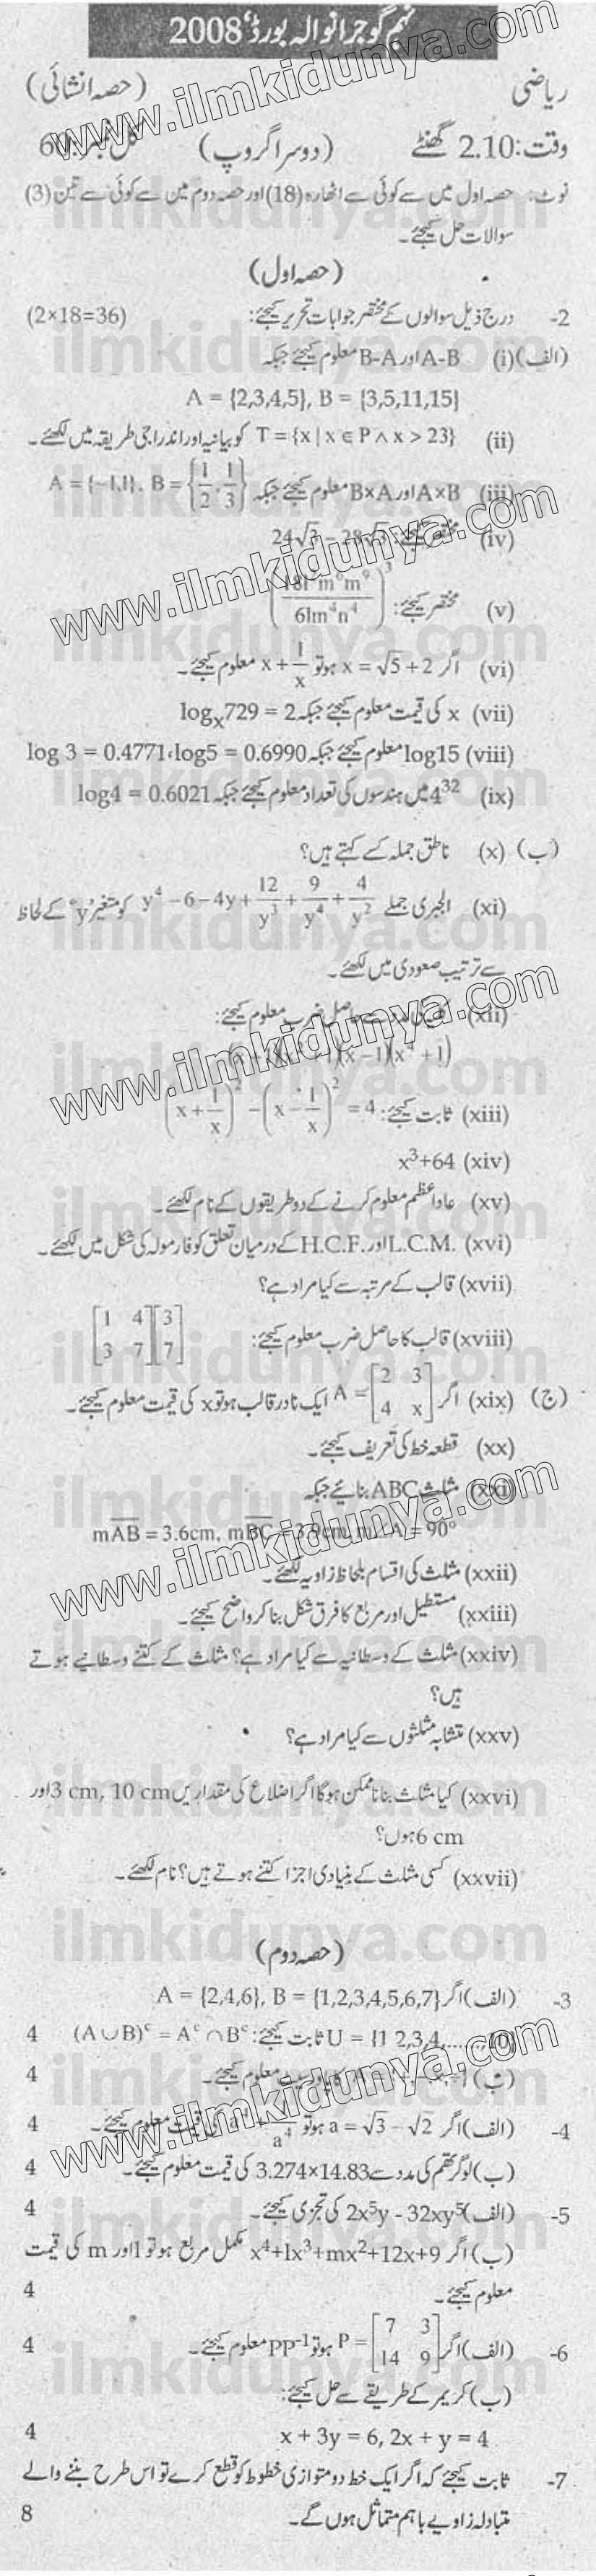 نہم گوجرانوالہ بورڈ'2008
ریاضی (حصہ انشائی)
وقت:2.10 گھنٹے (دوسرا گروپ) کل نمبر:60
نوٹ: حصہ اول میں سے کوئی سے اٹھارہ (18) اور حصہ دوم میں سے کوئی سے تین (3)
سوالات حل کیجئے۔
(حصہ اول)
2- درج ذیل سوالوں کے مختصر جوابات تحریر کیجئے: (2×18=36)
(الف) (i) A-B اور B-A معلوم کیجئے جبکہ
A = {2,3,4,5}, B = {3,5,11,15}
(ii) T = {x | x ∈ P ∧ x > 23} کو بیانیہ اور اندراجی طریقہ میں لکھئے۔
(iii) A×B اور B×A معلوم کیجئے جبکہ A = {-1,1}, B = {1/2, 1/3}
(iv) مختصر کیجئے: 24√3 - 28√3
(v) مختصر کیجئے:
(vi) اگر x = √5 + 2 ہو تو x + 1/x معلوم کیجئے۔
(vii) x کی قیمت معلوم کیجئے جبکہ logx729 = 2
(viii) log15 معلوم کیجئے جبکہ log 3 = 0.4771، log5 = 0.6990
(ix) 4³² میں ہندسوں کی تعداد معلوم کیجئے جبکہ log4 = 0.6021
(ب) (x) ناطق جملہ کسے کہتے ہیں؟
(xi) الجبری جملے y⁴ - 6 - 4y + 12/y³ + 9/y⁴ + 4/y² کو متغیر 'y' کے لحاظ
سے ترتیب صعودی میں لکھئے۔
(xii) حاصل ضرب معلوم کیجئے:
(x-1)(x⁴+1)
(xiii) ثابت کیجئے: (x + 1/x)² - (x - 1/x)² = 4
(xiv) x³+64
(xv) عاد اعظم معلوم کرنے کے دو طریقوں کے نام لکھئے۔
(xvi) L.C.M. اور H.C.F. کے درمیان تعلق کو فارمولہ کی شکل میں لکھئے۔
(xvii) قالب کے مرتبہ سے کیا مراد ہے؟
(xviii) قالب کا حاصل ضرب معلوم کیجئے: [1 4; 3 7][3; 7]
(ج) (xix) اگر A = [2 3; 4 x] ایک نادر قالب ہو تو x کی قیمت معلوم کیجئے۔
(xx) قطعہ خط کی تعریف کیجئے۔
(xxi) مثلث ABC بنائیے جبکہ
mAB = 3.6cm, mBC = 3.9cm, m∠A = 90°
(xxii) مثلث کی اقسام بلحاظ زاویہ لکھئے۔
(xxiii) مستطیل اور مربع کا فرق شکل بنا کر واضح کیجئے۔
(xxiv) مثلث کے وسطانیہ سے کیا مراد ہے؟ مثلث کے کتنے وسطانیے ہوتے
ہیں؟
(xxv) متشابہ مثلثوں سے کیا مراد ہے؟
(xxvi) کیا مثلث بنانا ممکن ہوگا اگر اضلاع کی مقداریں 3 cm, 10 cm اور
6 cm ہوں؟
(xxvii) کسی مثلث کے بنیادی اجزا کتنے ہوتے ہیں؟ نام لکھئے۔
(حصہ دوم)
3- (الف) اگر A = {2,4,6}, B = {1,2,3,4,5,6,7}
U = {1 2,3,4,.....,10} ثابت کیجئے: (A∪B)ᶜ = Aᶜ∩Bᶜ 4
(ب) معلوم کیجئے۔ 4
4- (الف) اگر a = √3 - √2 ہو تو کی قیمت معلوم کیجئے۔ 4
(ب) لوگرتھم کی مدد سے 3.274×14.83 کی قیمت معلوم کیجئے۔ 4
5- (الف) 2x⁵y - 32xy⁵ کی تجزی کیجئے۔ 4
(ب) اگر x⁴+lx³+mx²+12x+9 مکمل مربع ہو تو l اور m کی قیمت
معلوم کیجئے۔ 4
6- (الف) اگر P = [7 3; 14 9] ہو تو PP⁻¹ معلوم کیجئے۔ 4
(ب) کریمر کے طریقے سے حل کیجئے:
x + 3y = 6, 2x + y = 4 4
7- ثابت کیجئے کہ اگر ایک خط دو متوازی خطوط کو قطع کرے تو اس طرح بننے والے
متبادلہ زاویے باہم متماثل ہوں گے۔ 8
www.ilmkidunya.com
ilmkidunya.com